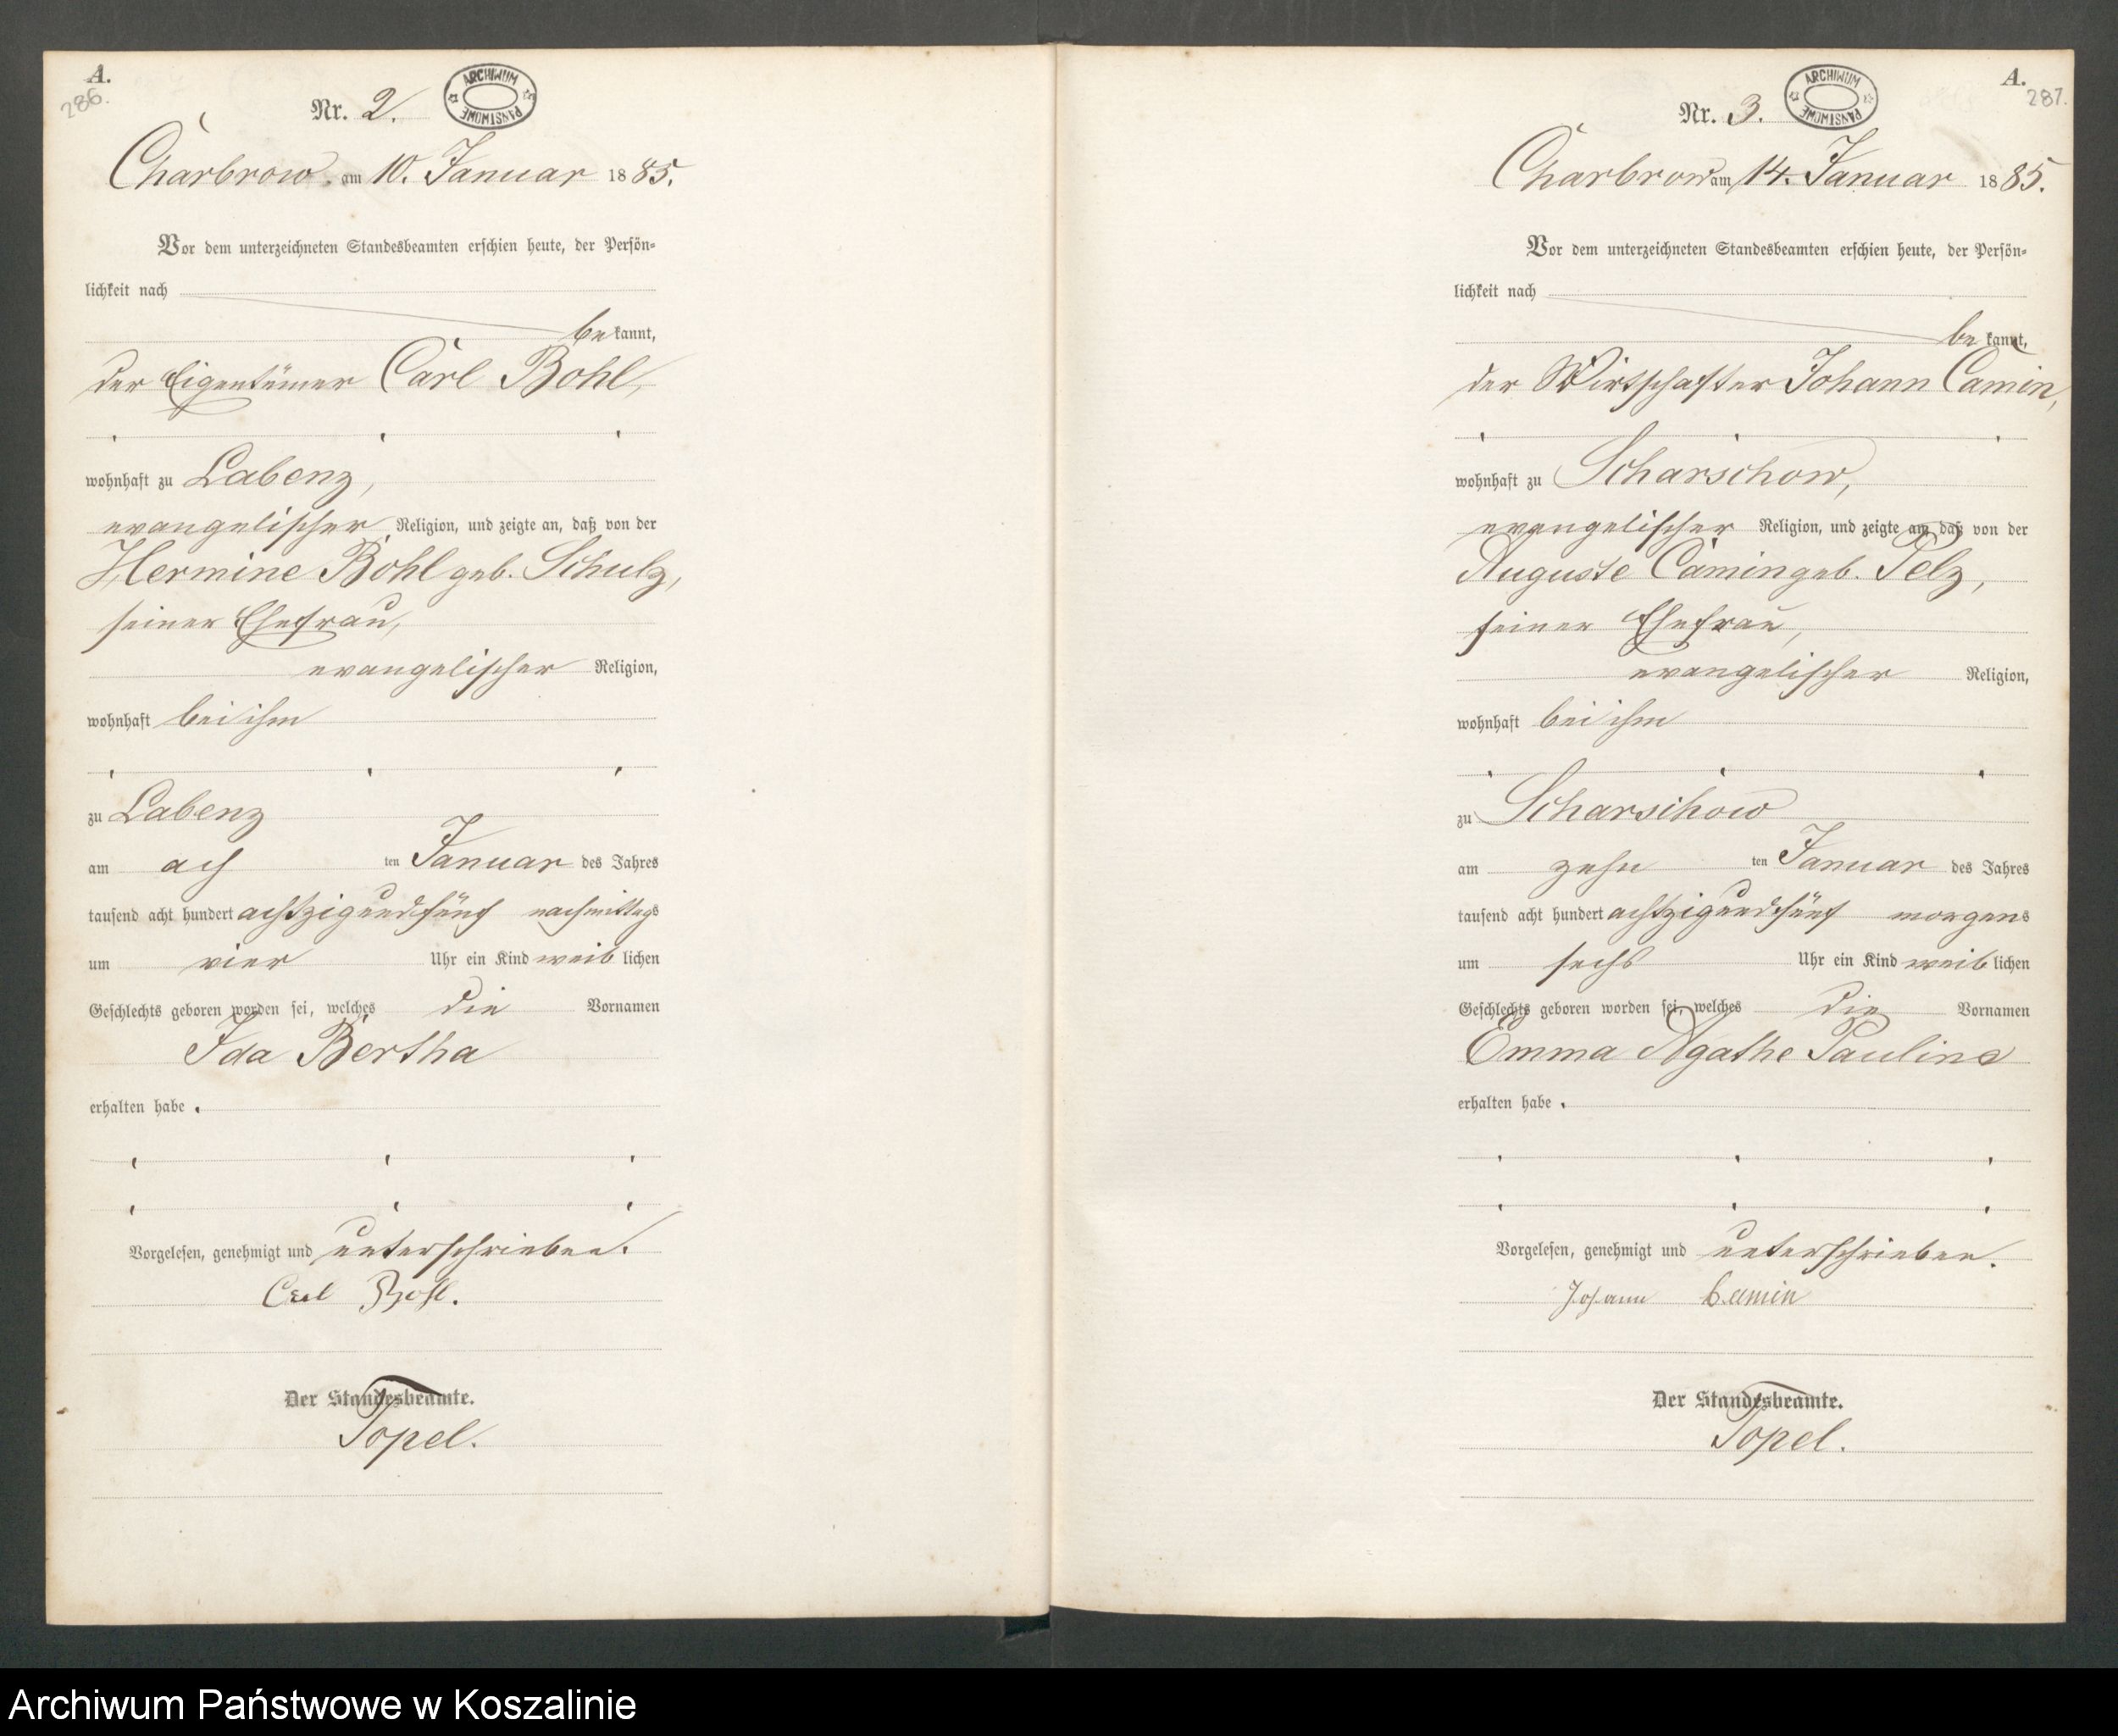 A.
286.
Nr. 2.
ARCHIWUM PAŃSTWOWE
Charbrow. am 10. Januar 1885.
Vor dem unterzeichneten Standesbeamten erschien heute, der Persön-
lichkeit nach
bekannt,
der Eigentümer Carl Bohl,
wohnhaft zu Labenz,
evangelischer Religion, und zeigte an, daß von der
Hermine Bohl geb. Schulz,
seiner Ehefrau,
evangelischer Religion,
wohnhaft bei ihm
zu Labenz
am ach ten Januar des Jahres
tausend acht hundert achtzigundfünf nachmittags
um vier Uhr ein Kind weiblichen
Geschlechts geboren worden sei, welches die Vornamen
Ida Bertha
erhalten habe.
Vorgelesen, genehmigt und unterschrieben.
Carl Bohl.
Der Standesbeamte.
Topel.
A.
287.
Nr. 3.
ARCHIWUM PAŃSTWOWE
Charbrow am 14. Januar 1885.
Vor dem unterzeichneten Standesbeamten erschien heute, der Persön-
lichkeit nach
bekannt,
der Wirtschafter Johann Camin,
wohnhaft zu Scharschow,
evangelischer Religion, und zeigte an, daß von der
Auguste Camin geb. Pelz,
seiner Ehefrau,
evangelischer Religion,
wohnhaft bei ihm
zu Scharschow
am zehn ten Januar des Jahres
tausend acht hundert achtzigundfünf morgens
um sechs Uhr ein Kind weiblichen
Geschlechts geboren worden sei, welches die Vornamen
Emma Agathe Pauline
erhalten habe.
Vorgelesen, genehmigt und unterschrieben.
Johann Camin
Der Standesbeamte.
Topel.
Archiwum Państwowe w Koszalinie